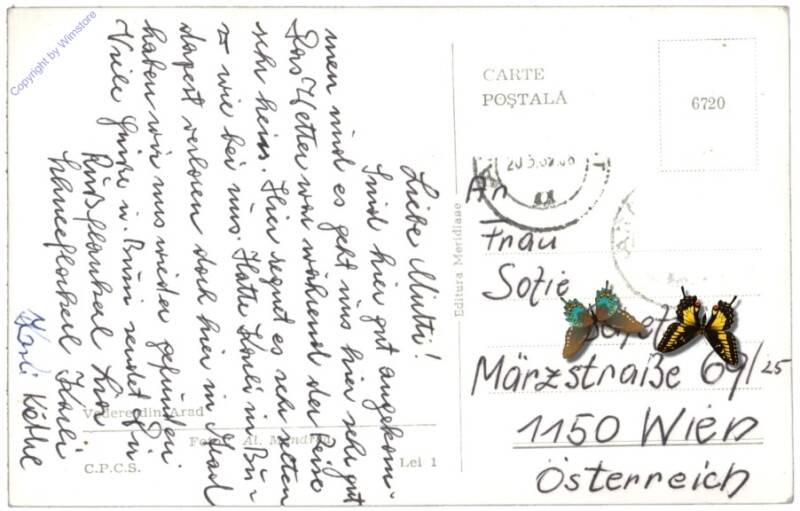 Copyright by Wimstore
Liebe Mutti!
Sind hier gut angekom-
men und es geht uns hier sehr gut
Das Wetter war während der Reise
sehr heiss. Hier regnet es sehr selten
wie bei uns. Hatte Karli in Bu-
dapest verloren doch hier in Arad
haben wir uns wieder gefunden.
Viele Grüße u. Bussi sendet Dir
Schneeflockerl Karli
Karli Käthe
Vedere din Arad
Foto: Al. Mendrea
C.P.C.S.
Lei 1
Editura Meridiane
CARTE
POȘTALĂ
6720
An
Frau
Sofie
Märzstraße 69/25
1150 Wien
Österreich